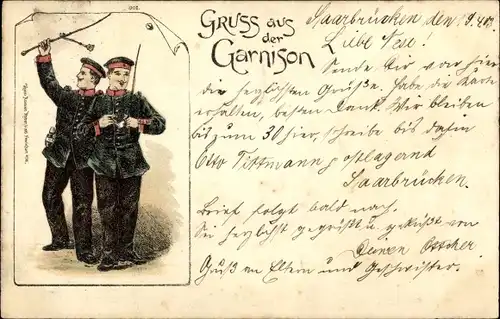 GRUSS aus
der
Garnison
Saarbrücken den 19.4.
Liebe Rese!
Sende Dir von hier
die herzlichsten Grüße. Habe die Karte
erhalten, besten Dank. Wir bleiben
bis zum 30 hier, schreibe bis dahin
Otto Tittmann, postlagernd
Saarbrücken.
Brief folgt bald nach.
Sei herzlichst gegrüßt u. geküßt von
Deinen
Gruß an Eltern und Geschwister.